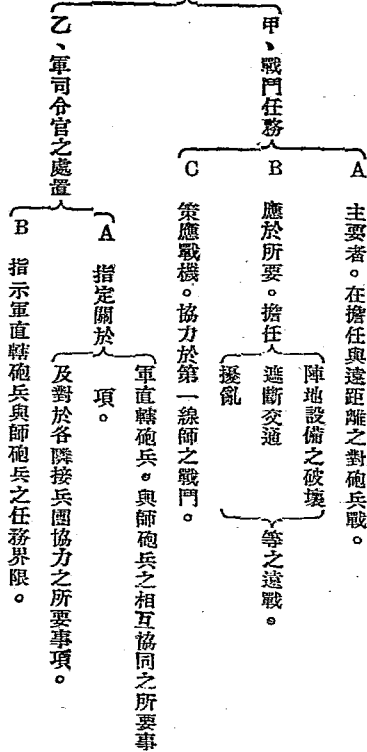 甲、戰鬥任務
A 主要者。在擔任與遠距離之對砲兵戰。
B 應於所要。擔任
陣地設備之破壞
遮斷交通
擾亂
等之遠戰。
C 策應戰機。協力於第一線師之戰鬥。
乙、軍司令官之處置
A 指定關於
軍直轄砲兵。與師砲兵之相互協同之所要事
項。
及對於各隣接兵團協力之所要事項。
B 指示軍直轄砲兵與師砲兵之任務界限。